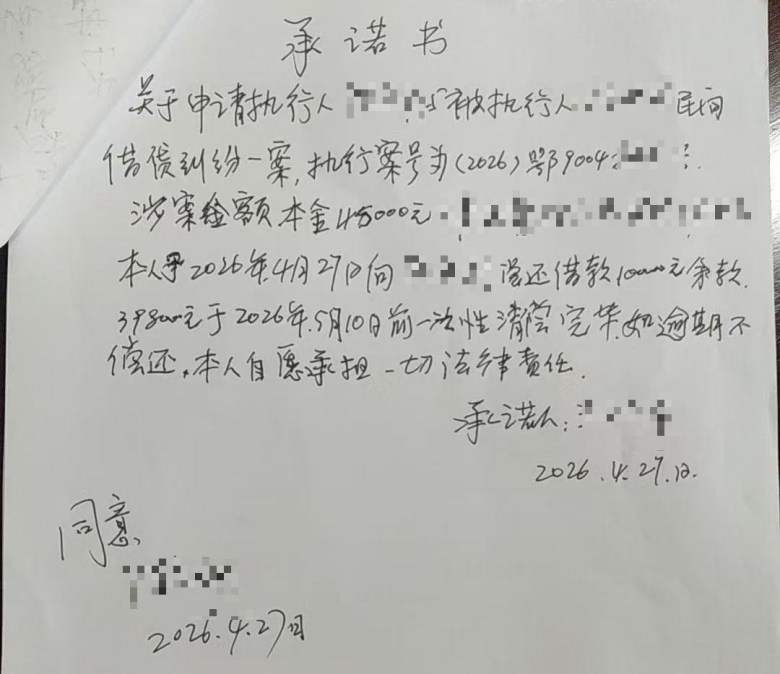 承诺书
关于申请执行人 与被执行人 民间
借贷纠纷一案,执行案号为(2026)鄂9004
涉案金额本金 元
本人于2026年4月27日向 偿还借款10000元余款
39800元于2026年5月10日前一次性清偿完毕,如逾期不
偿还,本人自愿承担一切法律责任.
承诺人:
2026.4.27日.
同意
2026.4.27日